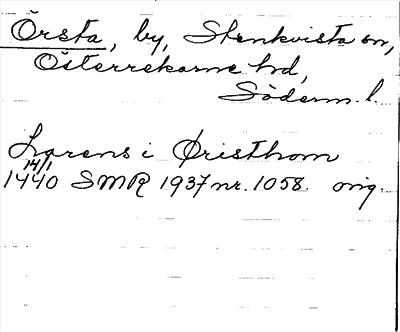 Örsta, by, Stenkvista sn,
Österrekarne hd,
Söderm. l.
Larens i Øristhom
14/1
1440 SMR 1937 nr. 1058. orig.